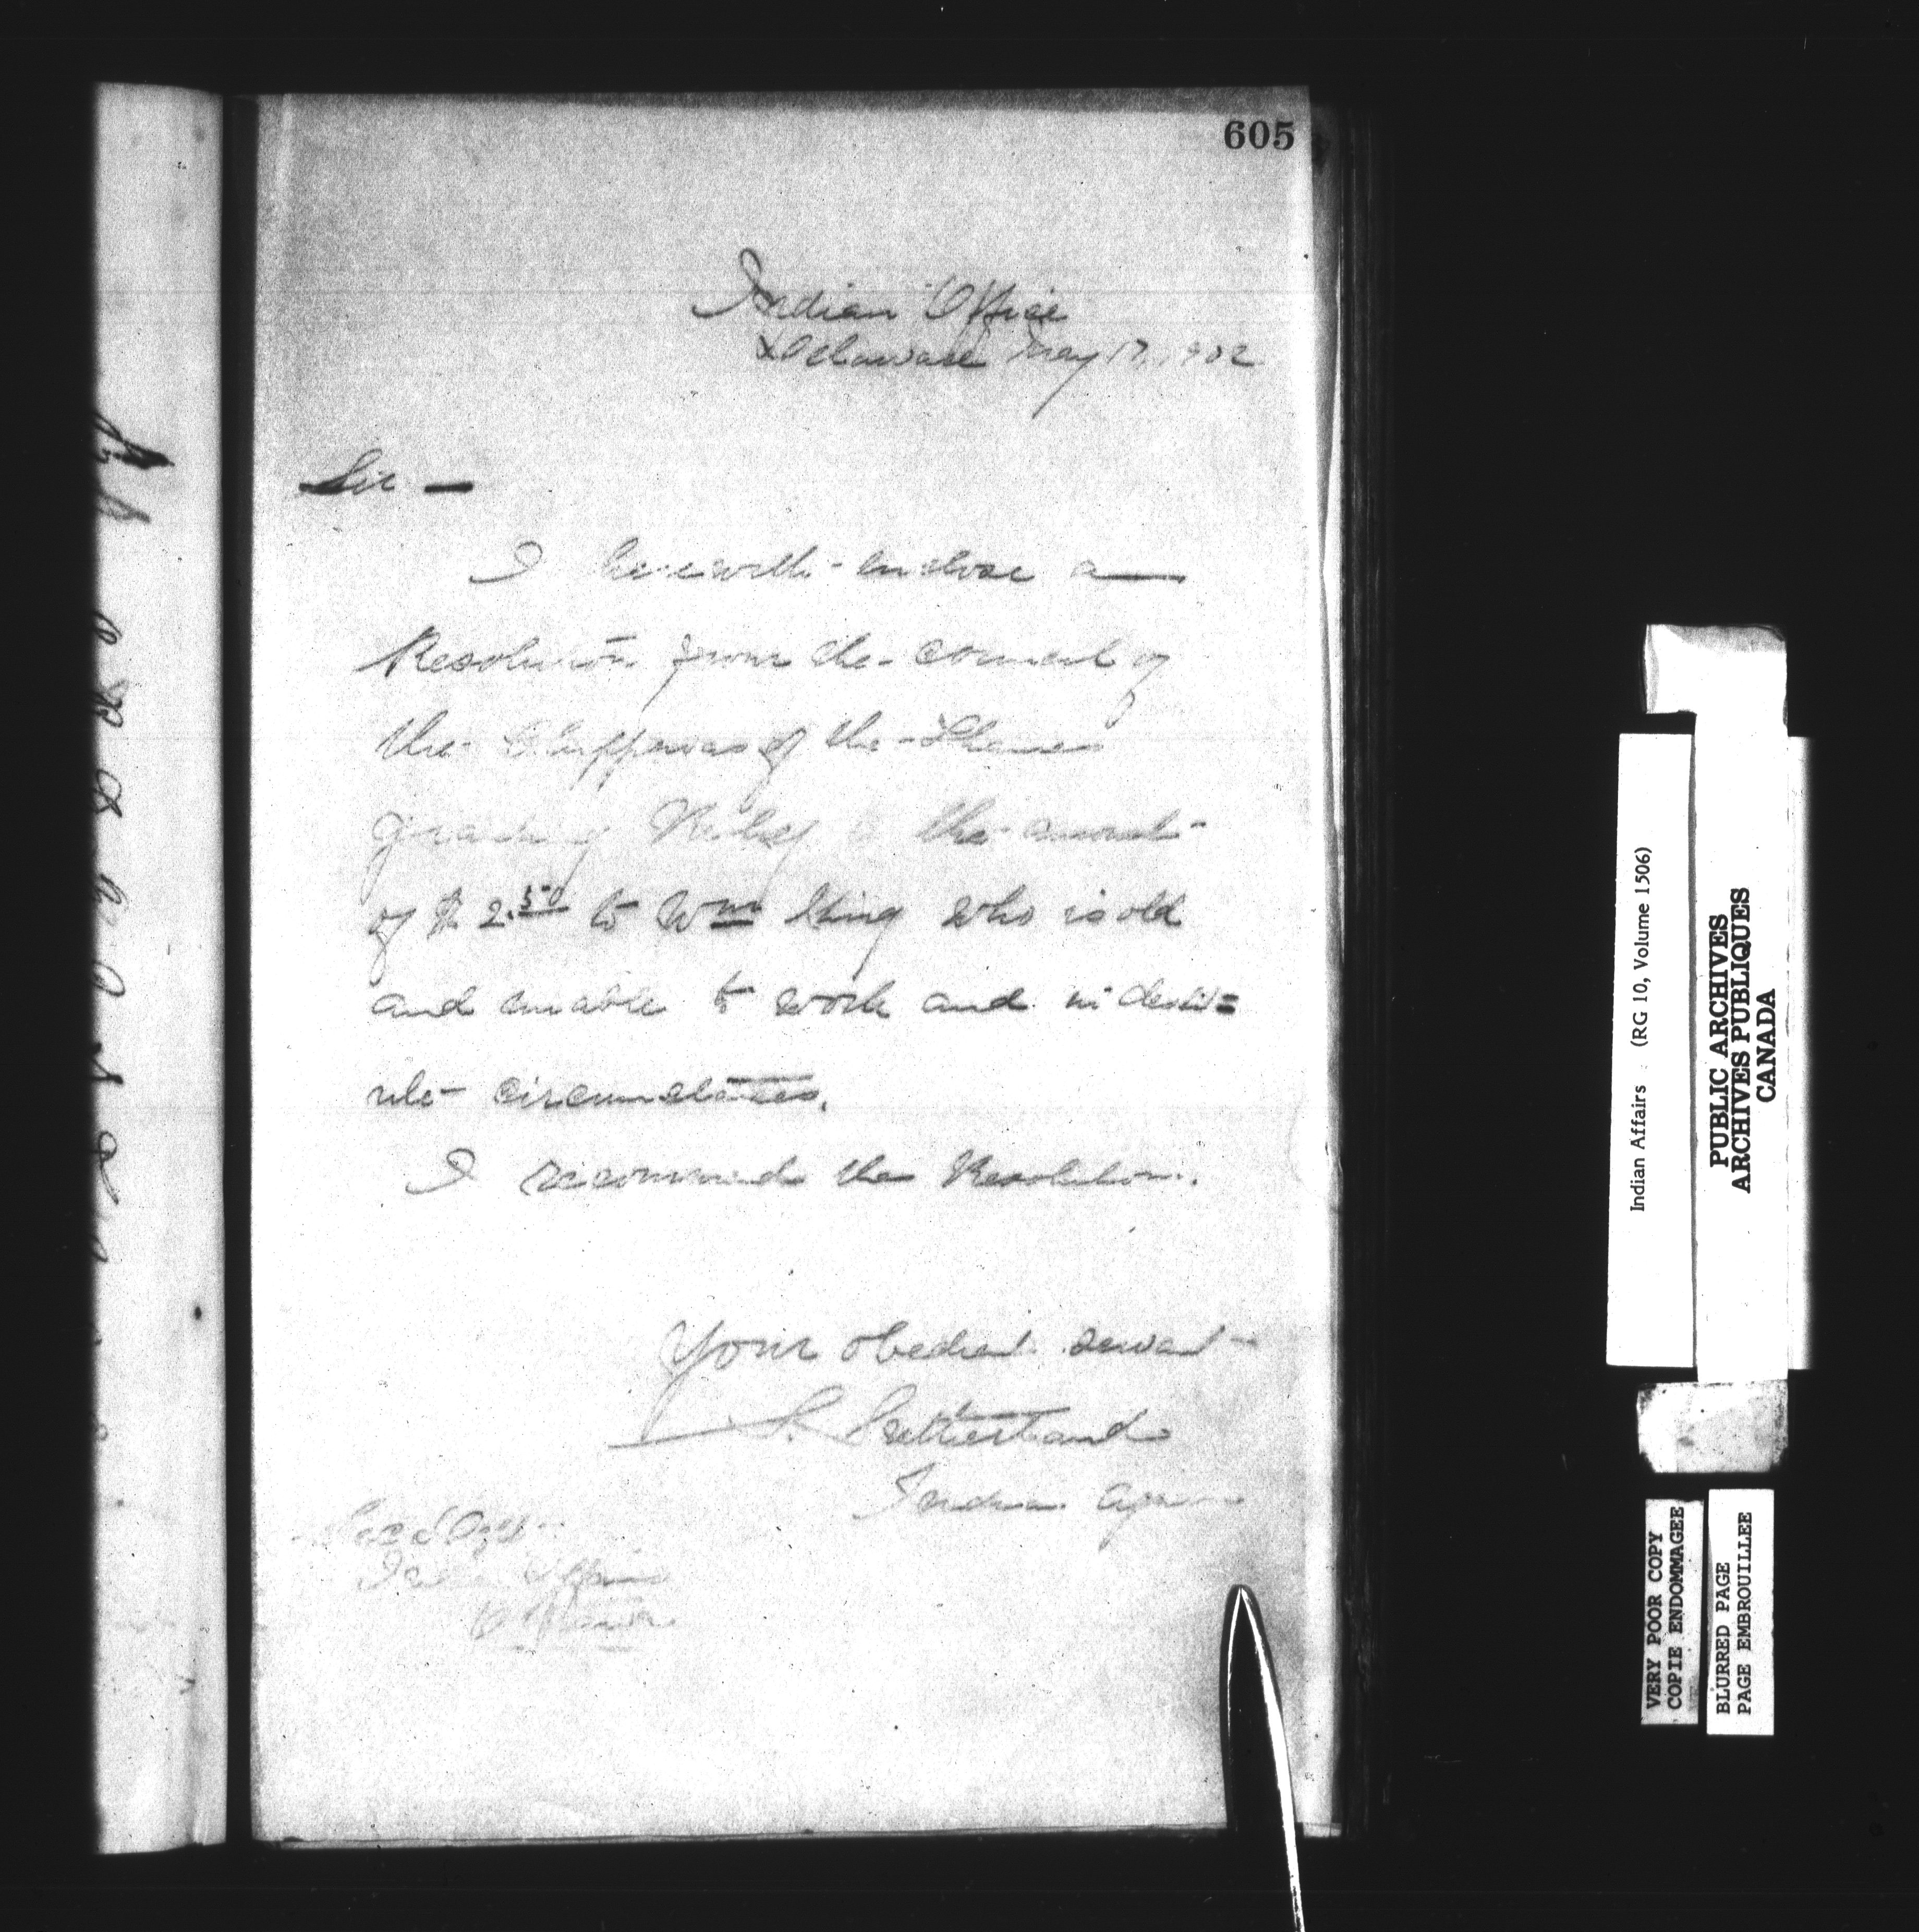 605
Indian Office
Delaware May 17, 1902
Sir —
I herewith enclose a
Resolution from the council of
the Chippewas of the Thames
granting Relief to the amount
of $2.50 to Wm King who is old
and unable to work and in desti=
tute circumstances.
I recommend the Resolution.
Your obedient servant
S. Sutherland
Indian Agent
Indian Office
Ottawa
Indian Affairs (RG 10, Volume 1506)
PUBLIC ARCHIVES
ARCHIVES PUBLIQUES
CANADA
VERY POOR COPY
COPIE ENDOMMAGEE
BLURRED PAGE
PAGE EMBROUILLEE